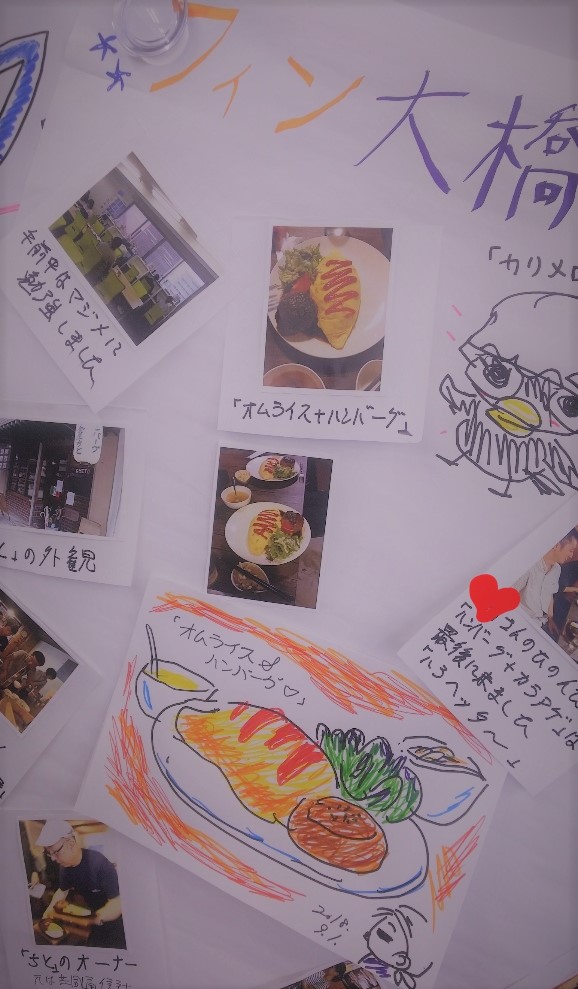 フィン大橋
「カリメロ
午前中はマジメに
勉強しました
「オムライス+ハンバーグ」
の外観
「オムライス&
ハンバーグ♡」
さんのひのんは
「ハンバーグ+カラアゲ」は
最後に来ました
「ハラヘッタ〜」
2018.
9.1.
「さと」のオーナー